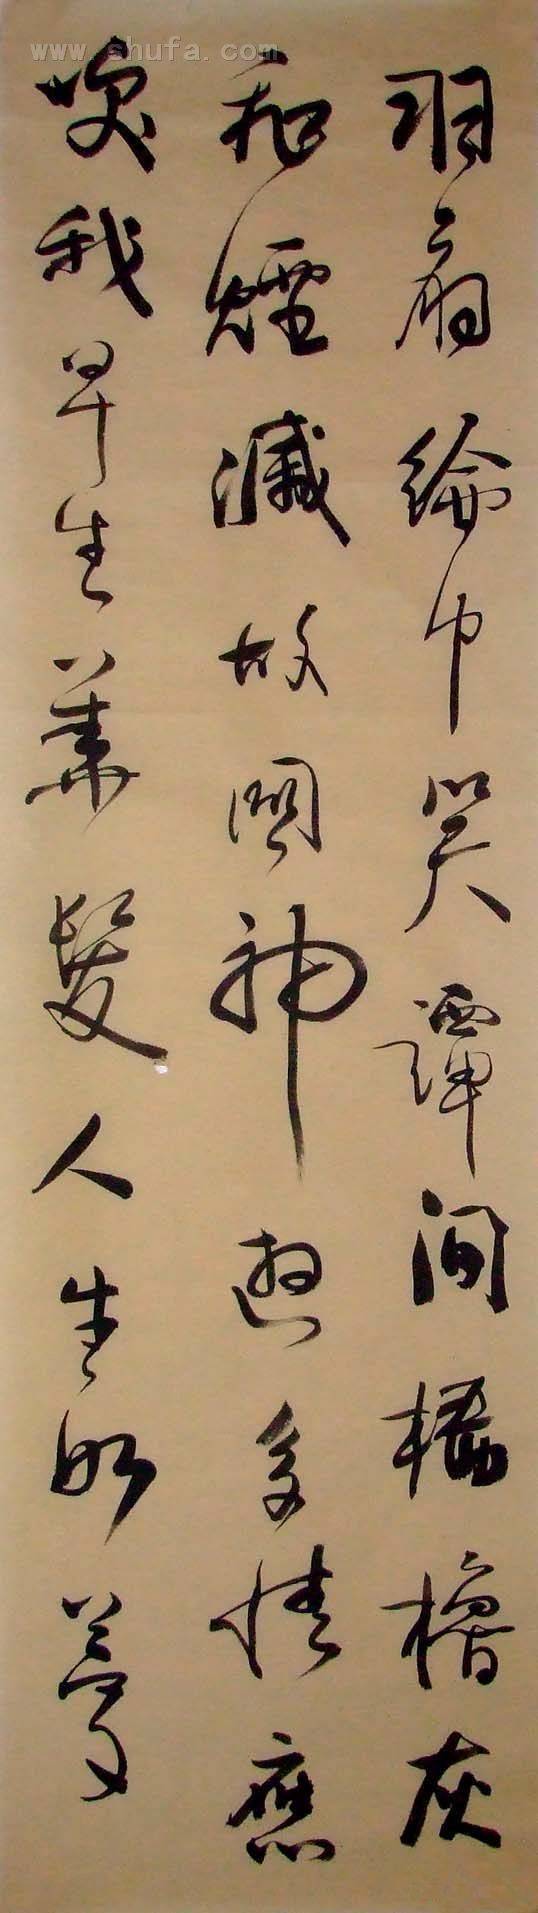 www.shufa.com
羽扇綸巾笑譚間檣櫓灰
飛煙滅故國神遊多情應
咲我早生華髮人生如夢